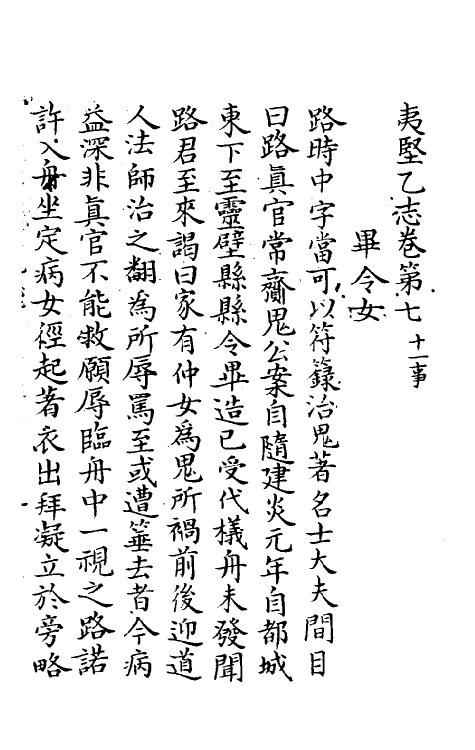 夷堅乙志卷第七 十一事
畢令女
路時中字當可以符籙治鬼著名士大夫間目
曰路眞官常齎鬼公案自隨建炎元年自都城
東下至靈壁縣縣令畢造已受代檥舟未發聞
路君至來謁曰家有仲女爲鬼所禍前後迎道
人法師治之翻爲所辱罵至或遭箠去者今病
益深非眞官不能救願辱臨舟中一視之路諾
許入舟坐定病女徑起著衣出拜凝立於旁略